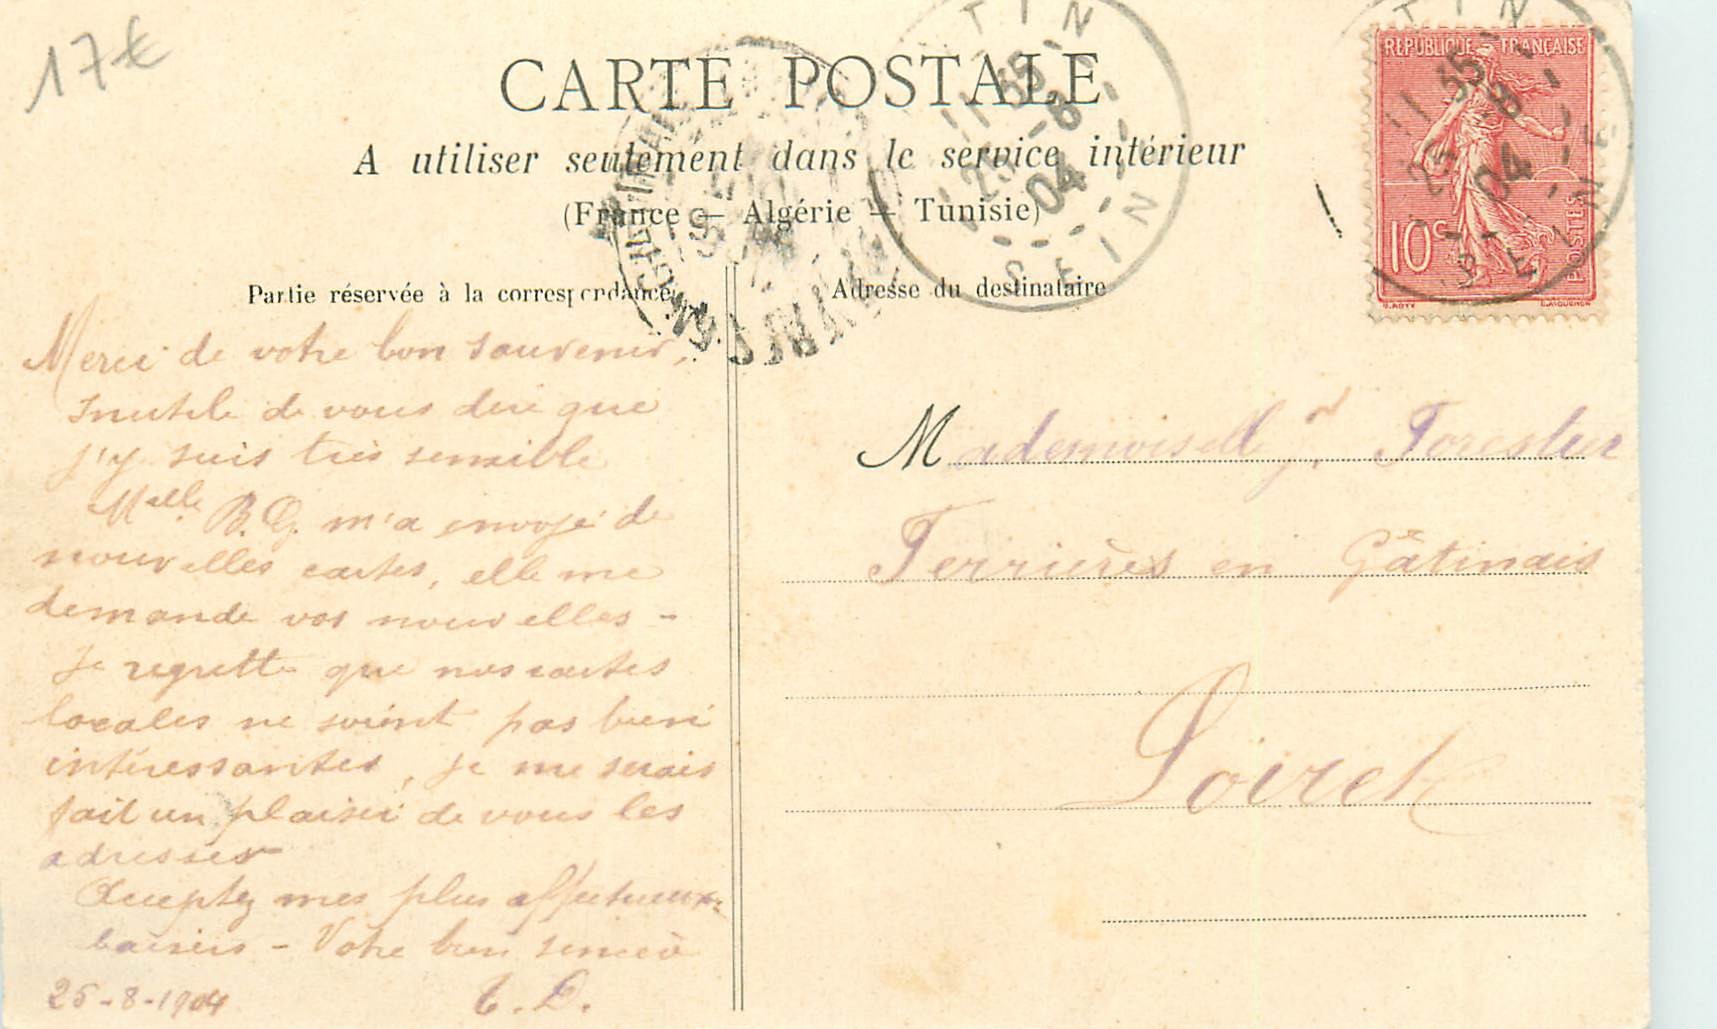 17€
CARTE POSTALE
A utiliser seulement dans le service intérieur
(France — Algérie — Tunisie)
Partie réservée à la correspondance
Adresse du destinataire
REPUBLIQUE FRANÇAISE
10c
POSTES
O. ROTY
11 35
25 -8
04
SEINE
FERRIERES-EN-GATINAIS
Merci de votre bon souvenir,
Inutile de vous dire que
j'y suis très sensible
Melle B. G. m'a envoyé de
nouvelles cartes, elle me
demande vos nouvelles -
Je regrette que nos cartes
locales ne soient pas bien
intéressantes, je me serais
fait un plaisir de vous les
adresser
Acceptez mes plus affectueux
baisers - Votre bien
25-8-1904
Mademoiselle J. Forestier
Ferrières en Gâtinais
Loiret